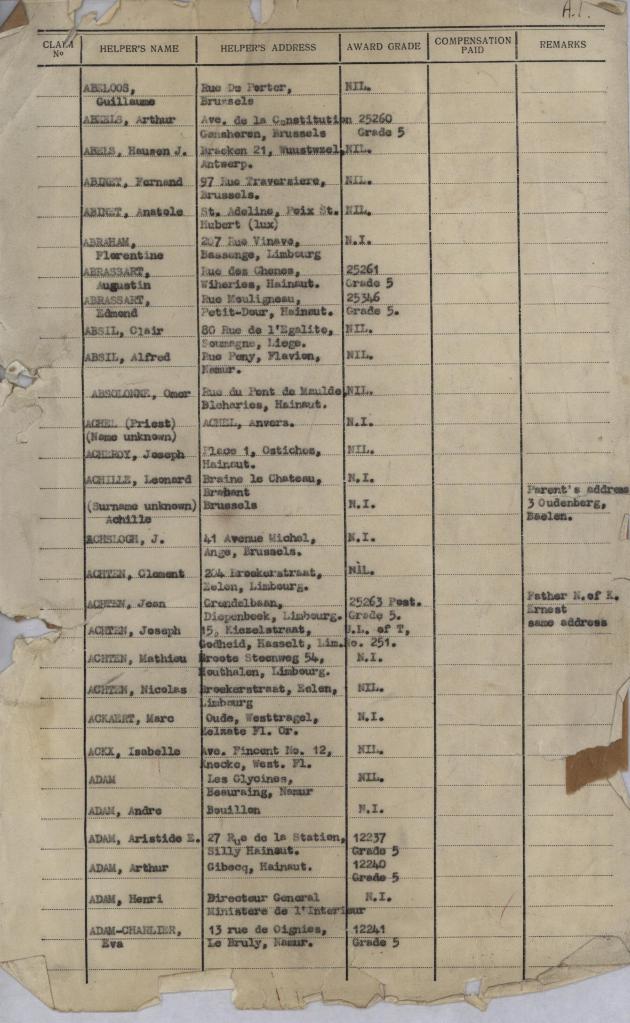 A.1.
CLAIM No HELPER'S NAME HELPER'S ADDRESS AWARD GRADE COMPENSATION PAID REMARKS
ABELOOS, Rue De Porter, NIL.
Guillaume Brussels
ABEELS, Arthur Ave. de la Constitution 25260
Ganshoren, Brussels Grade 5
ABELS, Hausen J. Bracken 21, Wuustwzel, NIL.
Antwerp.
ABINET, Fernand 97 Rue Traversiere, NIL.
Brussels.
ABINET, Anatole St. Adeline, Poix St. NIL.
Hubert (lux)
ABRAHAM, 207 Rue Vinave, N.I.
Florentine Bassenge, Limbourg
ABRASSART, Rue des Chenes, 25261
Augustin Wiheries, Hainaut. Grade 5
ABRASSART, Rue Mouligneau, 25346
Edmond Petit-Dour, Hainaut. Grade 5.
ABSIL, Clair 80 Rue de l'Egalite, NIL.
Soumagne, Liege.
ABSIL, Alfred Rue Pony, Flavion, NIL.
Namur.
ABSOLONNE, Omer Rue du Pont de Maulde, NIL.
Bleharies, Hainaut.
ACHEL (Priest) ACHEL, Anvers. N.I.
(Name unknown)
ACHEROY, Joseph Place 1, Ostiches, NIL.
Hainaut.
ACHILLE, Leonard Braine le Chateau, N.I.
Brabant Parent's address
(Surname unknown) Brussels N.I. 3 Oudenberg,
Achille Baelen.
ACHSLOGH, J. 41 Avenue Michel, N.I.
Ange, Brussels.
ACHTEN, Clement 204 Broekerstraat, NIL.
Eelen, Limbourg.
ACHTEN, Jean Grendelbaan, 25263 Post. Father N.of K.
Diepenbeek, Limbourg. Grade 5. Ernest
ACHTEN, Joseph 15, Kiezelstraat, U.L. of T, same address
Godheid, Hasselt, Lim. No. 251.
ACHTEN, Mathieu Groote Steenweg 54, N.I.
Houthalen, Limbourg.
ACHTEN, Nicolas Broekerstraat, Eelen, NIL.
Limbourg
ACKAERT, Marc Oude, Westtragel, N.I.
Zelzate Fl. Or.
ACKX, Isabelle Ave. Pincent No. 12, NIL.
Knocke, West. Fl.
ADAM Les Glycines, NIL.
Beauraing, Namur
ADAM, Andre Bouillon N.I.
ADAM, Aristide E. 27 Rue de la Station, 12237
Silly Hainaut. Grade 5
ADAM, Arthur Gibecq, Hainaut. 12240
Grade 5
ADAM, Henri Directeur General N.I.
Ministere de l'Interieur
ADAM-CHARLIER, 13 rue de Oignies, 12241
Eva Le Bruly, Namur. Grade 5